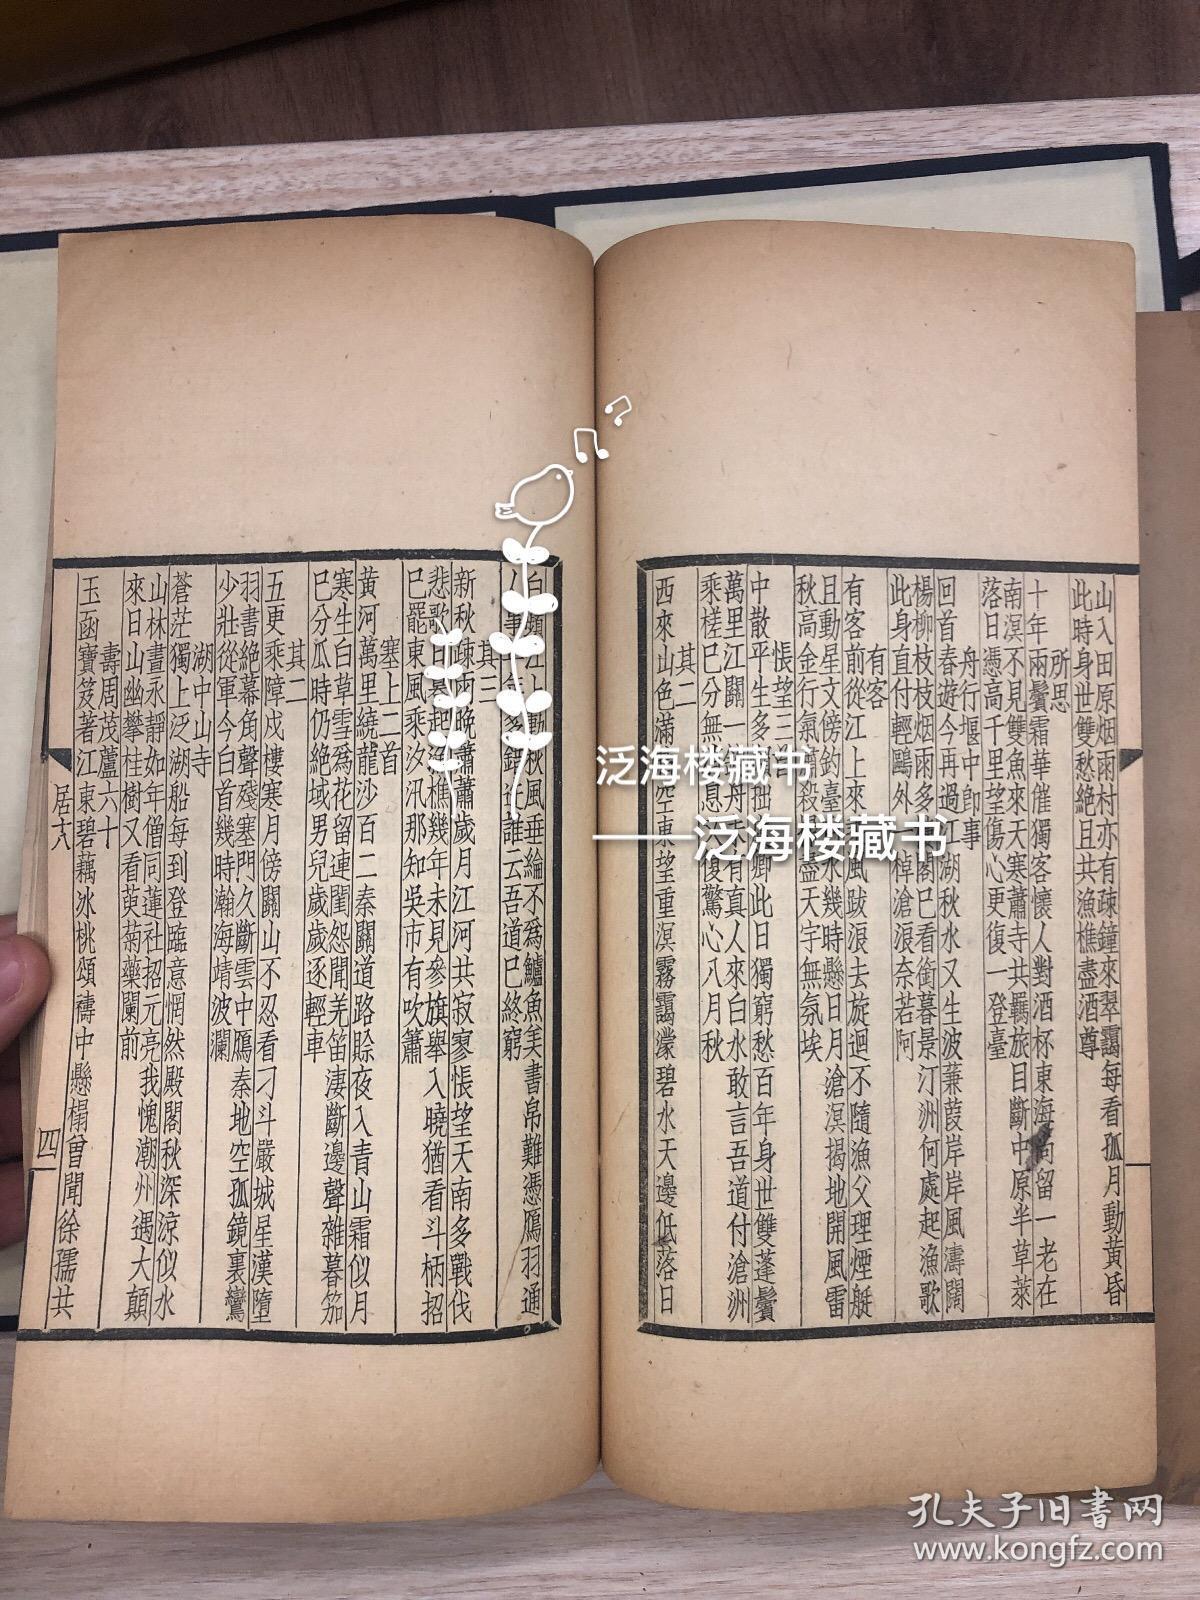 山入田原烟雨村亦有疎鐘來翠靄每看孤月動黃昏
此時身世雙愁絕且共漁樵盡酒尊
所思
十年兩鬢霜華催獨客懷人對酒杯東海尚留一老在
南溟不見雙魚來天寒蕭寺共羈旅目斷中原半草萊
落日憑高千里望傷心更復一登臺
舟行堰中卽事
回首春遊今再過江湖秋水又生波蒹葭岸岸風濤闊
楊柳枝枝烟雨多
閣巳看銜暮景汀洲何處起漁歌
此身自付輕鷗外一棹滄浪奈若何
有客
有客前從江上來
風跋浪去旋迴不隨漁父理煙艇
且動星文傍釣臺
水幾時懸日月滄溟揭地開風雷
秋高金行氣
殺
盡天宇無氛埃
悵望三
中散平生多
拙
卿此日獨窮愁百年身世雙蓬鬢
萬里江關一
舟
有真人來白水敢言吾道付滄洲
乘槎巳分無
息
復驚心八月秋
其二
西來山色滿
空東望重溟霧靄濛碧水天邊低落日
白
江上動秋風垂綸不爲鱸魚美書帛難憑鴈羽通
誰云吾道巳終窮
其三
新秋疎雨晚蕭蕭歲月江河共寂寥悵望天南多戰伐
悲歌
起漁樵幾年未見參旗舉入曉猶看斗柄招
巳罷東風乘汐汛那知吳市有吹簫
塞上二首
黃河萬里繞龍沙百二秦關道路賒夜入青山霜似月
寒生白草雪爲花留連閨怨聞羌笛淒斷邊聲雜暮笳
巳分瓜時仍絕域男兒歲歲逐輕車
其二
五更乘障戍樓寒月傍關山不忍看刁斗嚴城星漢墮
羽書絕幕角聲殘塞門久斷雲中鴈秦地空孤鏡裏鸞
少壯從軍今白首幾時瀚海靖波瀾
湖中山寺
蒼茫獨上泛湖船每到登臨意惘然殿閣秋深涼似水
山林晝永靜如年僧同蓮社招元亮我愧潮州遇大顛
來日山幽攀桂樹又看萸菊藥闌前
壽周茂蘆六十
玉函寶笈著江東碧藕冰桃頌禱中懸榻曾聞徐孺共
居六
四
泛海楼藏书
——泛海楼藏书
孔夫子旧书网
www.kongfz.com